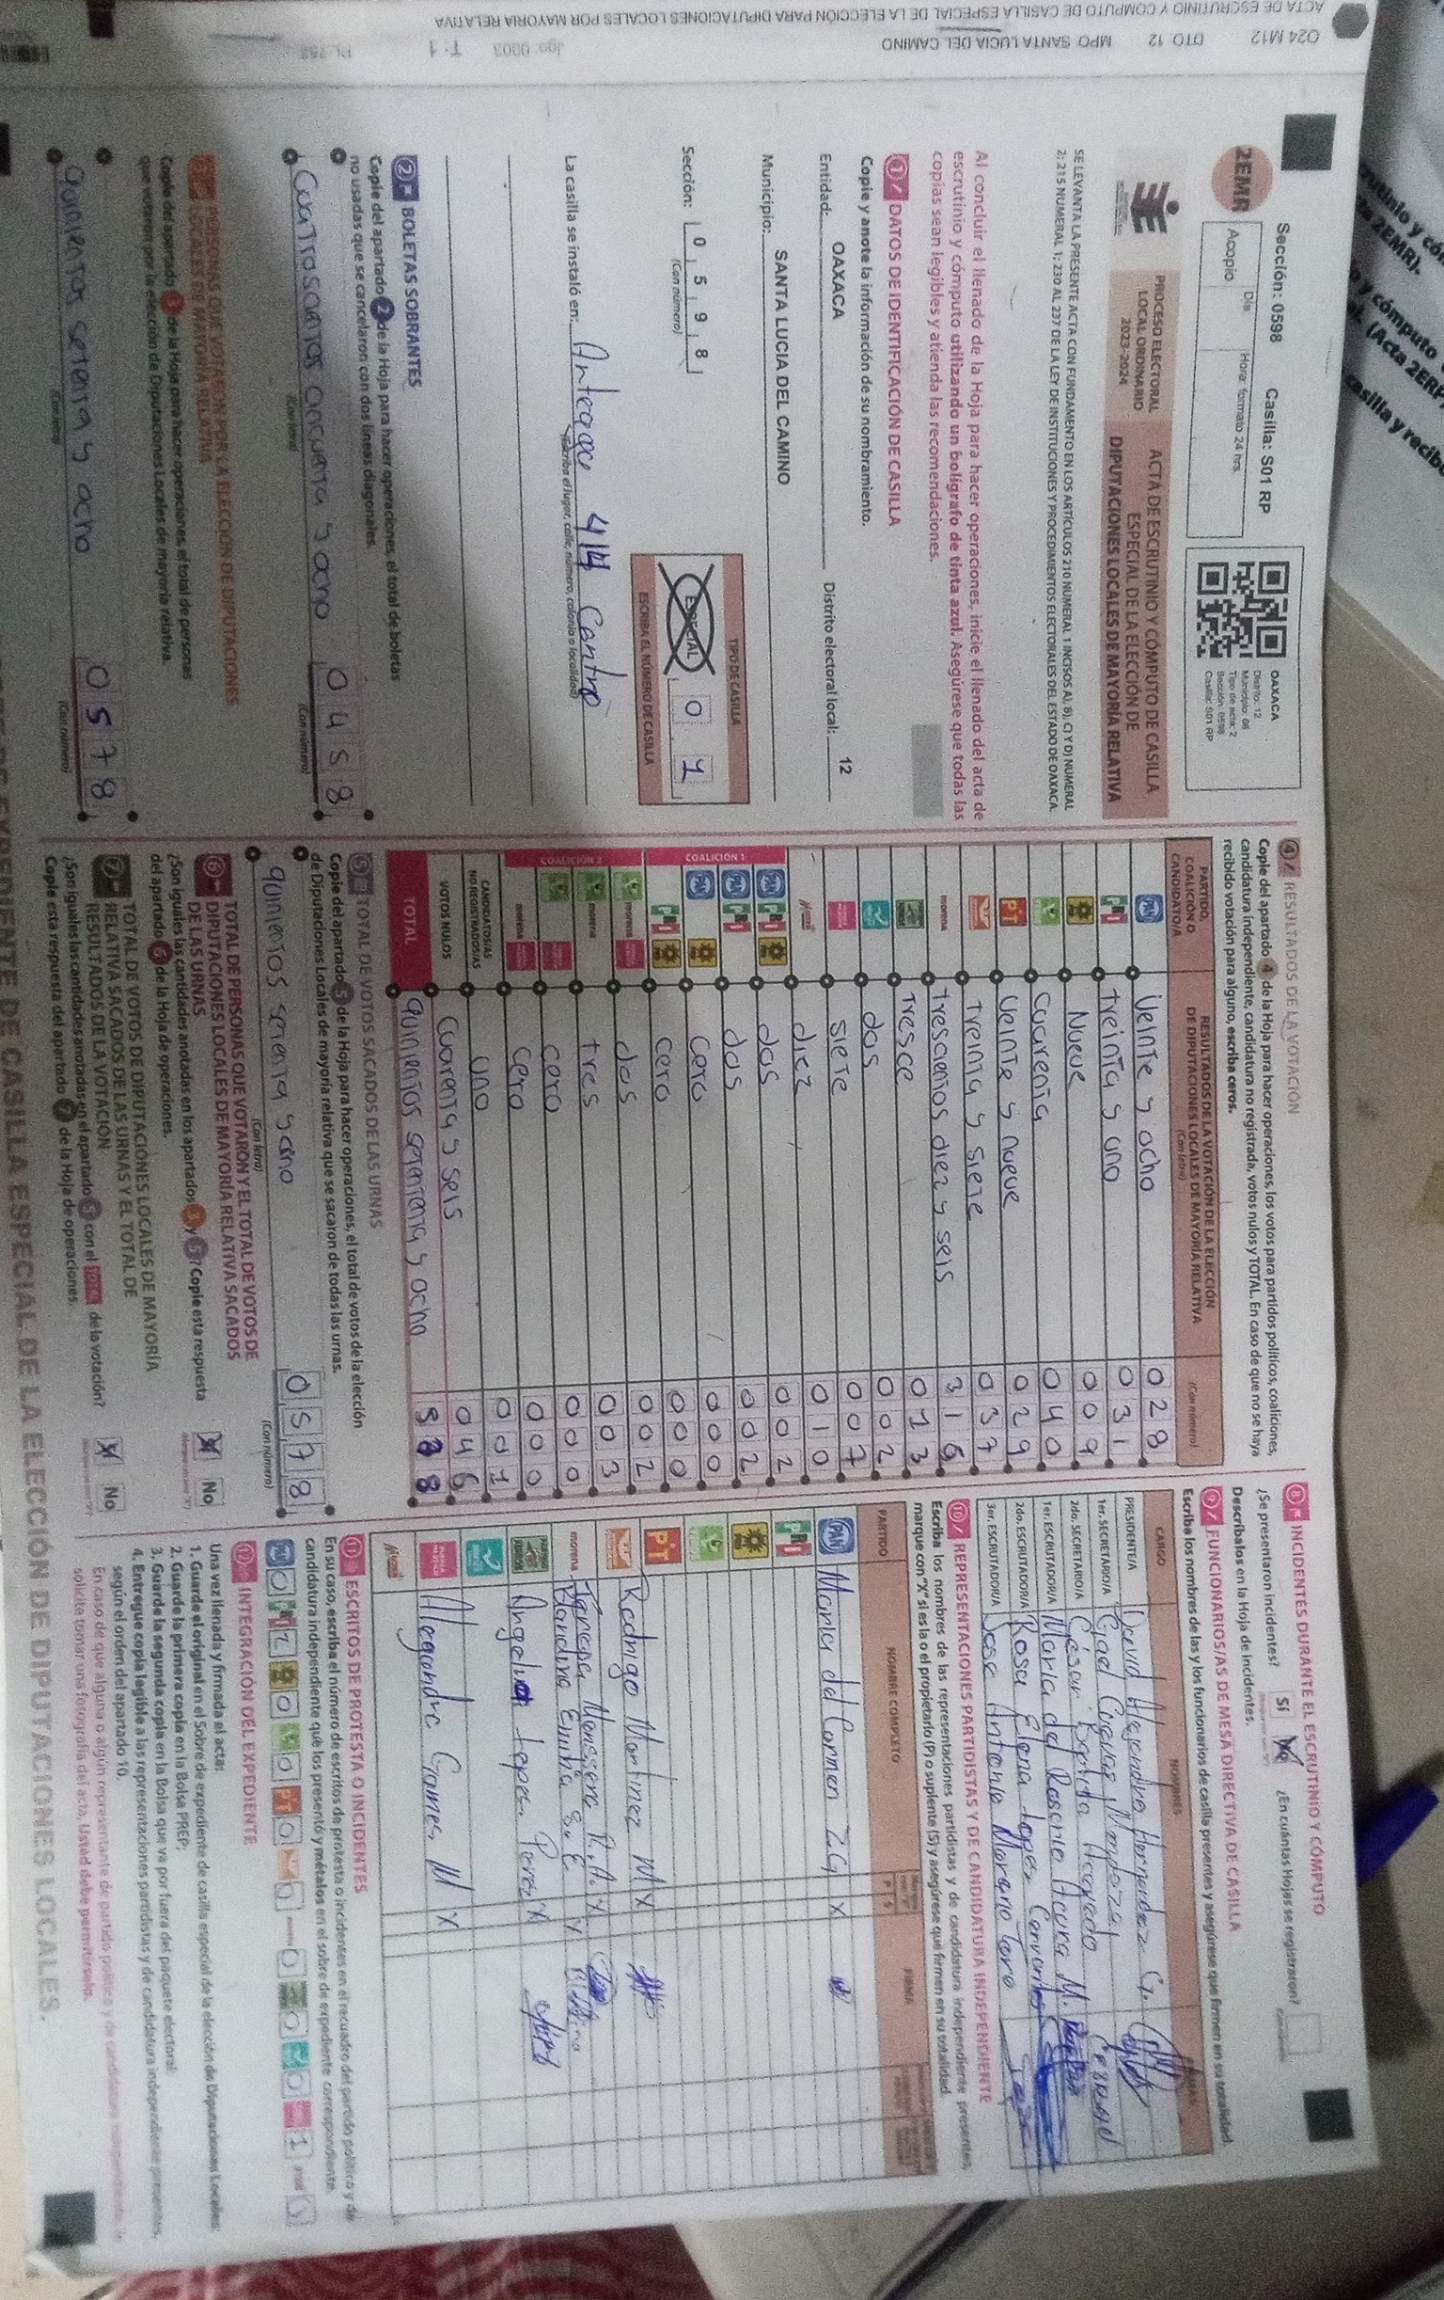 Sección: 0598 Casilla: S01 RP
2EMR
Acopio
Día
Hora: formato 24 hrs.
OAXACA
Distrito: 12
Casilla: S01 RP
PROCESO ELECTORAL
LOCAL ORDINARIO
2023-2024
ACTA DE ESCRUTINIO Y CÓMPUTO DE CASILLA
ESPECIAL DE LA ELECCIÓN DE
DIPUTACIONES LOCALES DE MAYORÍA RELATIVA
SE LEVANTA LA PRESENTE ACTA CON FUNDAMENTO EN LOS ARTÍCULOS 210 NUMERAL 1 INCISOS A), B), C) Y D) NUMERAL
2; 215 NUMERAL 1; 230 AL 237 DE LA LEY DE INSTITUCIONES Y PROCEDIMIENTOS ELECTORALES DEL ESTADO DE OAXACA.
Al concluir el llenado de la Hoja para hacer operaciones, inicie el llenado del acta de
escrutinio y cómputo utilizando un bolígrafo de tinta azul. Asegúrese que todas las
copias sean legibles y atienda las recomendaciones.
1 DATOS DE IDENTIFICACIÓN DE CASILLA
Copie y anote la información de su nombramiento.
Entidad: OAXACA Distrito electoral local: 12
Municipio: SANTA LUCIA DEL CAMINO
Sección: 0 5 9 8
(Con número)
TIPO DE CASILLA
ESPECIAL 0 1
ESCRIBA EL NÚMERO DE CASILLA
La casilla se instaló en: 414
(Escriba el lugar, calle, número, colonia o localidad)
2 BOLETAS SOBRANTES
Copie del apartado 2 de la Hoja para hacer operaciones, el total de boletas
no usadas que se cancelaron con dos líneas diagonales.
Cuatroscientos cincuenta y ocho 0 4 5 8
(Con letra) (Con número)
3 PERSONAS QUE VOTARON POR LA ELECCIÓN DE DIPUTACIONES
LOCALES DE MAYORÍA RELATIVA
Copie del apartado 3 de la Hoja para hacer operaciones, el total de personas
que votaron por la elección de Diputaciones Locales de mayoría relativa.
quinientos setenta y ocho 0 5 7 8
(Con letra) (Con número)
4 RESULTADOS DE LA VOTACIÓN
Copie del apartado 4 de la Hoja para hacer operaciones, los votos para partidos políticos, coaliciones,
candidatura independiente, candidatura no registrada, votos nulos y TOTAL. En caso de que no se haya
recibido votación para alguno, escriba ceros.
PARTIDO,
COALICIÓN O
CANDIDATO/A
RESULTADOS DE LA VOTACIÓN DE LA ELECCIÓN
DE DIPUTACIONES LOCALES DE MAYORÍA RELATIVA
(Con letra)
(Con número)
PAN Veinte y ocho 0 2 8
PRI treinta y uno 0 3 1
Nueve 0 0 9
Cuarenta 0 4 0
PT Veinte y nueve 0 2 9
Treinta y siete 0 3 7
morena trescientos diez y seis 3 1 6
Tresce 0 1 3
dos 0 0 2
siete 0 0 7
diez 0 1 0
COALICIÓN 1
PAN PRI dos 0 0 2
PAN PRI dos 0 0 2
PAN cero 0 0 0
PRI cero 0 0 0
COALICIÓN 2
morena dos 0 0 2
morena tres 0 0 3
cero 0 0 0
morena cero 0 0 0
CANDIDATOS/AS
NO REGISTRADOS/AS uno 0 0 1
VOTOS NULOS cuarenta y seis 0 4 6
TOTAL quinientos setenta y ocho
5 TOTAL DE VOTOS SACADOS DE LAS URNAS
Copie del apartado 5 de la Hoja para hacer operaciones, el total de votos de la elección
de Diputaciones Locales de mayoría relativa que se sacaron de todas las urnas.
quinientos setenta y ocho 0 5 7 8
(Con letra) (Con número)
6 TOTAL DE PERSONAS QUE VOTARON Y EL TOTAL DE VOTOS DE
DIPUTACIONES LOCALES DE MAYORÍA RELATIVA SACADOS
DE LAS URNAS
¿Son iguales las cantidades anotadas en los apartados 3 y 5? Copie esta respuesta
del apartado 6 de la Hoja de operaciones.
No
7 TOTAL DE VOTOS DE DIPUTACIONES LOCALES DE MAYORÍA
RELATIVA SACADOS DE LAS URNAS Y EL TOTAL DE
RESULTADOS DE LA VOTACIÓN
¿Son iguales las cantidades anotadas en el apartado 5 con el TOTAL de la votación?
Copie esta respuesta del apartado 7 de la Hoja de operaciones.
No
8 INCIDENTES DURANTE EL ESCRUTINIO Y CÓMPUTO
¿Se presentaron incidentes? Sí No ¿En cuántas Hojas se registraron?
Descríbalos en la Hoja de incidentes.
9 FUNCIONARIOS/AS DE MESA DIRECTIVA DE CASILLA
Escriba los nombres de las y los funcionarios de casilla presentes y asegúrese que firmen en su totalidad.
CARGO NOMBRES
PRESIDENTE/A David Alejandro Hernandez G.
1er. SECRETARIO/A Gael Cuevas Mendoza
2do. SECRETARIO/A Cesar
1er. ESCRUTADOR/A Maria del Rosario Acuña M.
2do. ESCRUTADOR/A Rosa Elena Lopez
3er. ESCRUTADOR/A Jose Antonio
10 REPRESENTACIONES PARTIDISTAS Y DE CANDIDATURA INDEPENDIENTE
Escriba los nombres de las representaciones partidistas y de candidatura independiente presentes,
marque con "X" si es la o el propietario (P) o suplente (S) y asegúrese que firmen en su totalidad.
PARTIDO NOMBRE COMPLETO FIRMA
PAN Maria del Carmen Z.G X
PRI
PT
Rodrigo Martinez M X
morena
Lopez Perez X
Alegandro Games M X
11 ESCRITOS DE PROTESTA O INCIDENTES
En su caso, escriba el número de escritos de protesta o incidentes en el recuadro del partido político y de
candidatura independiente que los presentó y métalos en el sobre de expediente correspondiente.
12 INTEGRACIÓN DEL EXPEDIENTE
Una vez llenada y firmada el acta:
1. Guarde el original en el Sobre de expediente de casilla especial de la elección de Diputaciones Locales;
2. Guarde la primera copia en la Bolsa PREP;
3. Guarde la segunda copia en la Bolsa que va por fuera del paquete electoral;
4. Entregue copia legible a las representaciones partidistas y de candidatura independiente presentes,
según el orden del apartado 10.
solicite tomar una fotografía del acta. Usted debe permitírselo.
EXPEDIENTE DE CASILLA ESPECIAL DE LA ELECCIÓN DE DIPUTACIONES LOCALES.
024 M12 DTO. 12 MPO. SANTA LUCIA DEL CAMINO
ACTA DE ESCRUTINIO Y CÓMPUTO DE CASILLA ESPECIAL DE LA ELECCIÓN PARA DIPUTACIONES LOCALES POR MAYORÍA RELATIVA